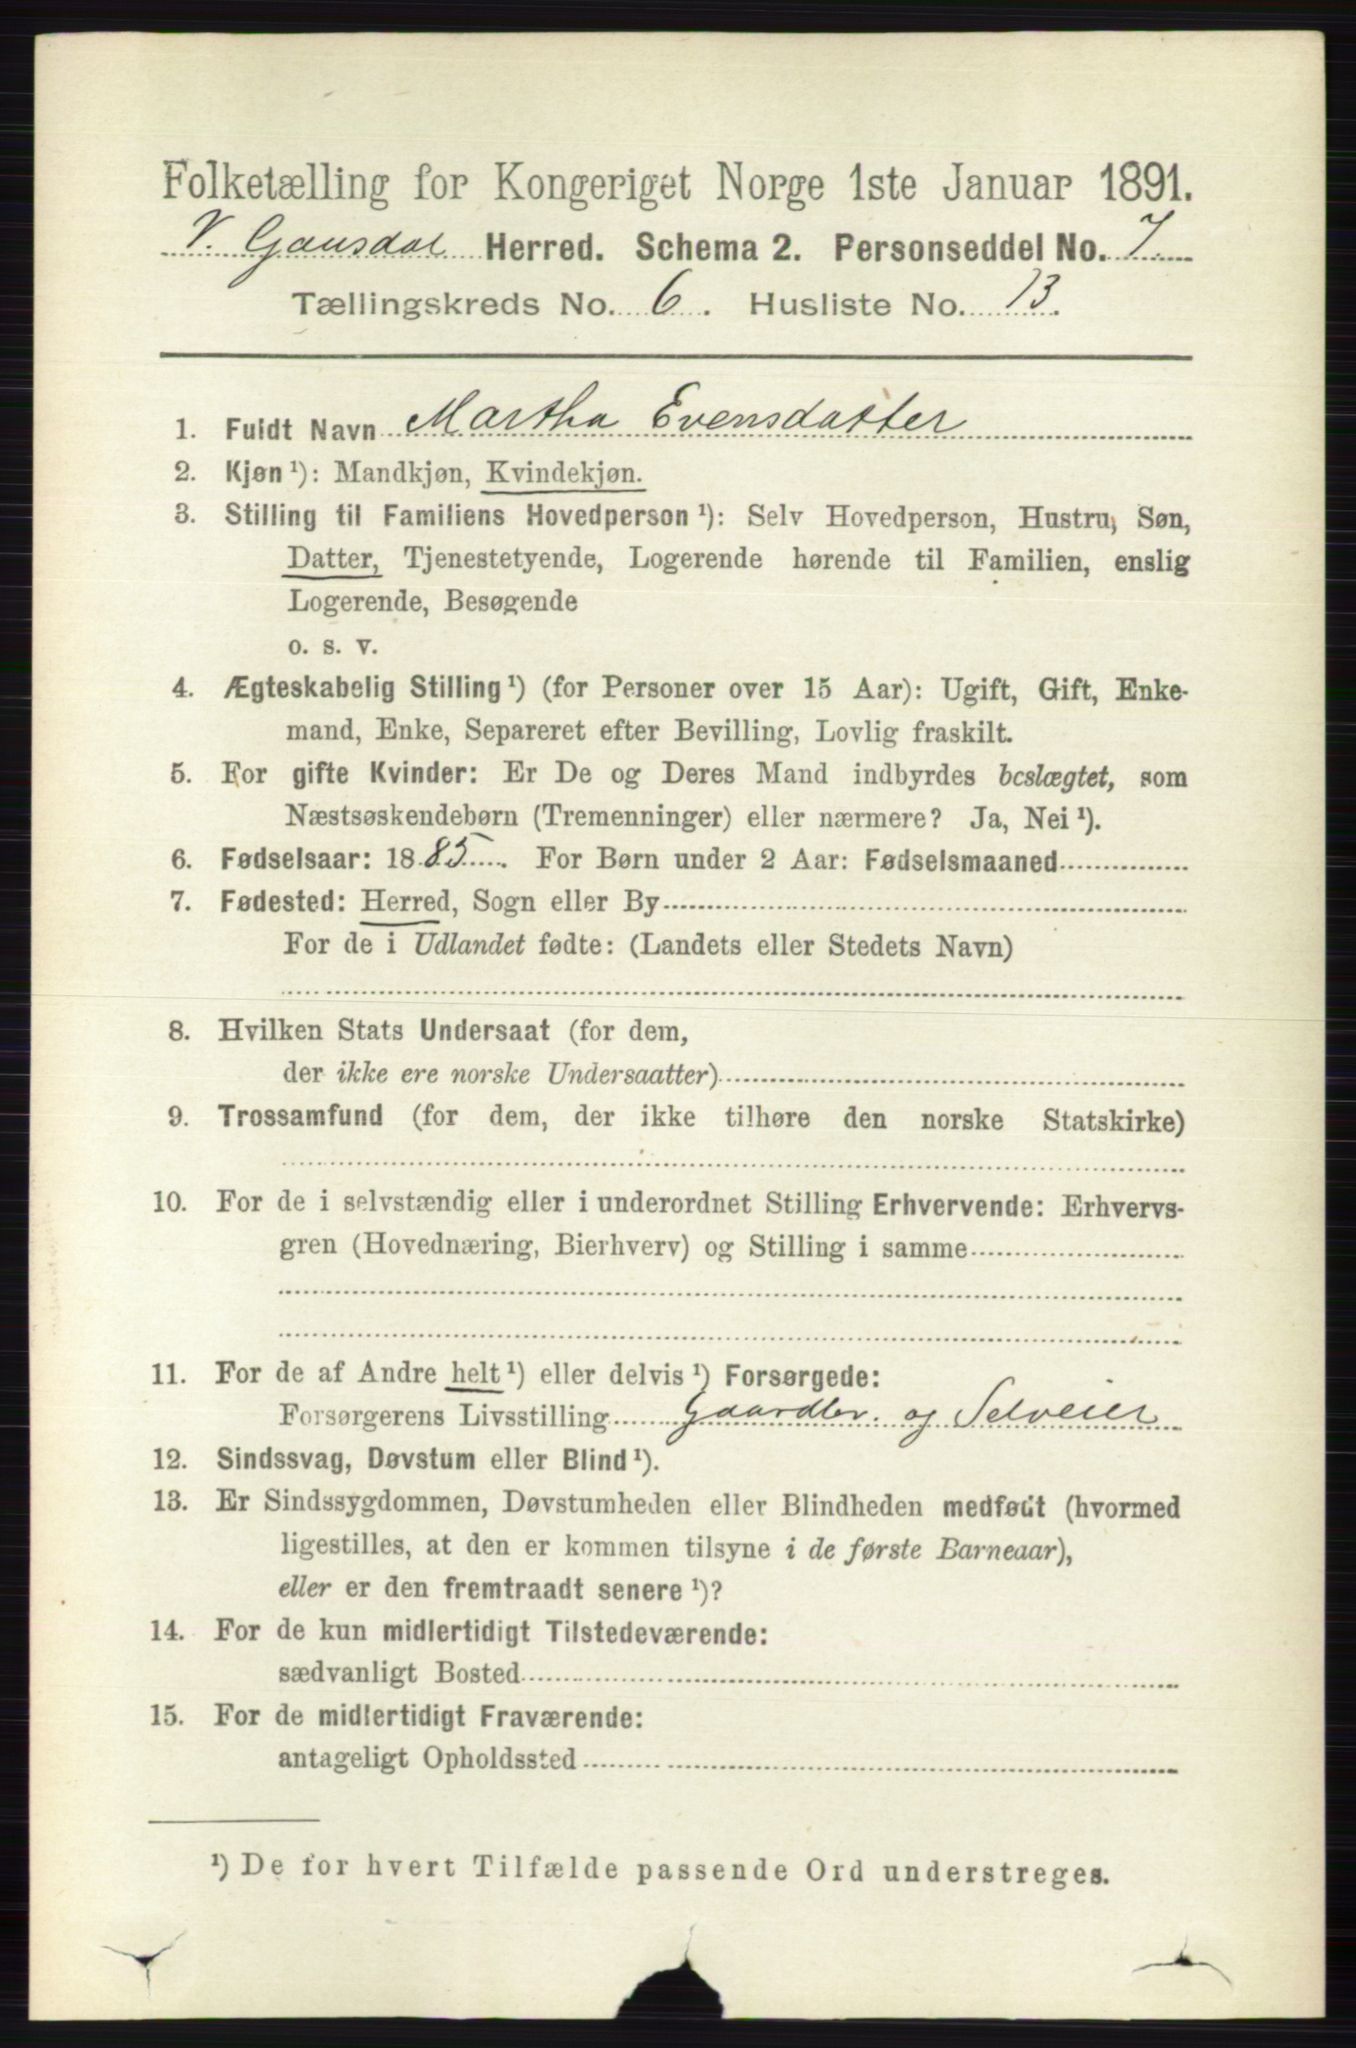 Folketælling for Kongeriget Norge 1ste Januar 1891.
V. Gausdal Herred. Schema 2. Personseddel No. 7
Tællingskreds No. 6. Husliste No. 13.
1. Fuldt Navn Martha Evensdatter
2. Kjøn ¹): Mandkjøn, Kvindekjøn.
3. Stilling til Familiens Hovedperson ¹): Selv Hovedperson, Hustru, Søn,
Datter, Tjenestetyende, Logerende hørende til Familien, enslig
Logerende, Besøgende
o. s. v.
4. Ægteskabelig Stilling ¹) (for Personer over 15 Aar): Ugift, Gift, Enke-
mand, Enke, Separeret efter Bevilling, Lovlig fraskilt.
5. For gifte Kvinder: Er De og Deres Mand indbyrdes beslægtet, som
Næstsøskendebørn (Tremenninger) eller nærmere? Ja, Nei ¹).
6. Fødselsaar: 1885. For Børn under 2 Aar: Fødselsmaaned
7. Fødested: Herred, Sogn eller By
For de i Udlandet fødte: (Landets eller Stedets Navn)
8. Hvilken Stats Undersaat (for dem,
der ikke ere norske Undersaatter)
9. Trossamfund (for dem, der ikke tilhøre den norske Statskirke)
10. For de i selvstændig eller i underordnet Stilling Erhvervende: Erhvervs-
gren (Hovednæring, Bierhverv) og Stilling i samme
11. For de af Andre helt ¹) eller delvis ¹) Forsørgede:
Forsørgerens Livsstilling Gaardbr. og Selveier
12. Sindssvag, Døvstum eller Blind ¹).
13. Er Sindssygdommen, Døvstumheden eller Blindheden medfødt (hvormed
ligestilles, at den er kommen tilsyne i de første Barneaar),
eller er den fremtraadt senere ¹)?
14. For de kun midlertidigt Tilstedeværende:
sædvanligt Bosted
15. For de midlertidigt Fraværende:
antageligt Opholdssted
¹) De for hvert Tilfælde passende Ord understreges.